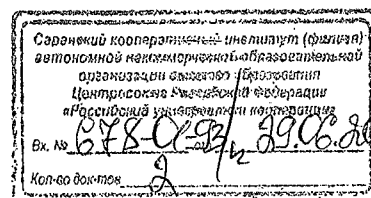 Саранский кооперативный институт (филиал)
автономной некоммерческой образовательной
организации высшего образования
Центросоюза Российской Федерации
«Российский университет кооперации»
Вх. № 678-01-93/ 29.06.20
Кол-во док-тов 2